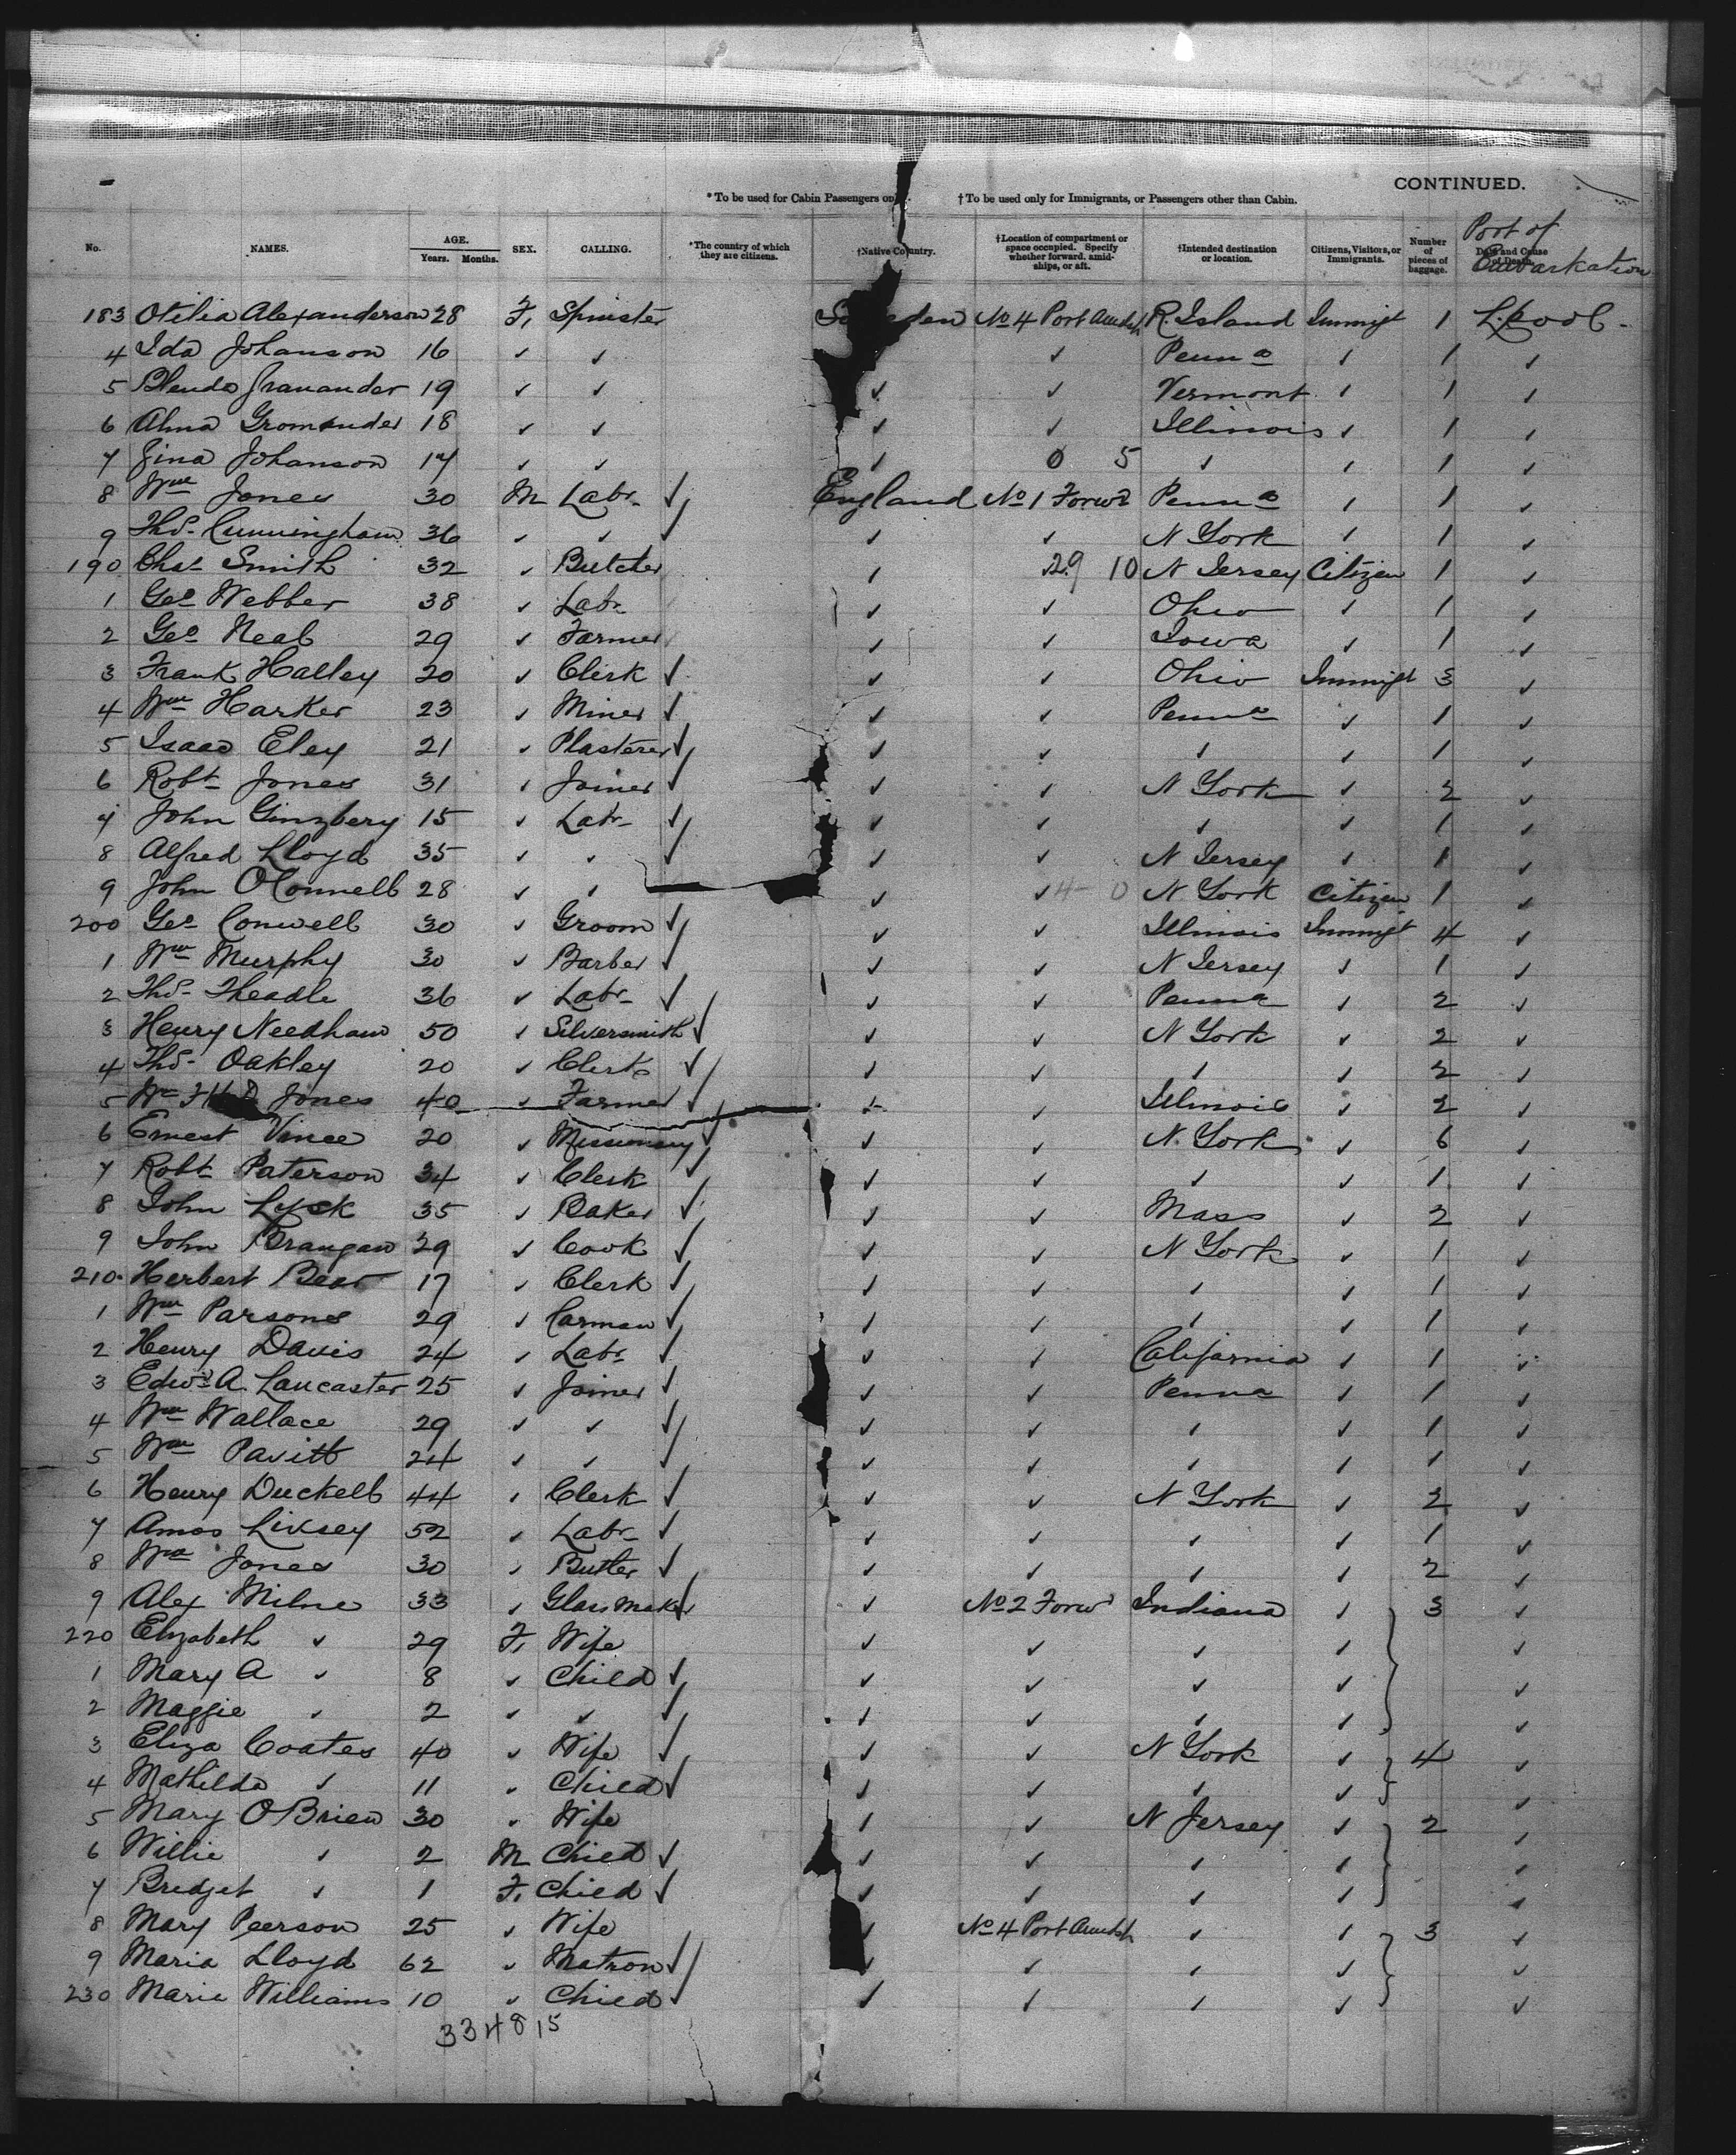 CONTINUED.
*To be used for Cabin Passengers on †To be used only for Immigrants, or Passengers other than Cabin.
No. NAMES. AGE. Years. Months. SEX. CALLING. *The country of which they are citizens. †Native Country. †Location of compartment or space occupied. Specify whether forward, amidships, or aft. †Intended destination or location. Citizens, Visitors, or Immigrants. Number of pieces of baggage. Date and Cause of Death. Port of Embarkation
183 Otilia Alexanderson 28 F, Spinster Sweden No 4 Port Amdsh R. Island Immigt 1 L.pool -
4 Ida Johanson 16 ✓ ✓ ✓ Penna ✓ 1 ✓
5 Blenda 19 ✓ ✓ ✓ ✓ Vermont ✓ 1 ✓
6 Alma 18 ✓ ✓ ✓ ✓ Illinois ✓ 1 ✓
7 Johanson 17 ✓ ✓ ✓ 0 5 ✓ ✓ 1 ✓
8 Wm Jones 30 M Labr ✓ England No 1 Forwd Penna ✓ 1 ✓
9 Thos. Cunningham 36 ✓ ✓ ✓ ✓ ✓ N York ✓ 1 ✓
190 Chas Smith 32 ✓ Butcher ✓ 29 10 N Jersey Citizen 1 ✓
1 Geo Webber 38 ✓ Labr ✓ ✓ Ohio ✓ 1 ✓
2 Geo Neal 29 ✓ Farmer ✓ ✓ Iowa ✓ 1 ✓
3 Frank Halley 20 ✓ Clerk ✓ ✓ ✓ Ohio Immigt 3 ✓
4 Wm Harker 23 ✓ Miner ✓ ✓ ✓ Penna ✓ 1 ✓
5 Isaac Eley 21 ✓ Plasterer ✓ ✓ ✓ ✓ ✓ 1 ✓
6 Robt Jones 31 ✓ Joiner ✓ ✓ ✓ N York ✓ 2 ✓
7 John Ginzbery 15 ✓ Labr ✓ ✓ ✓ ✓ ✓ 1 ✓
8 Alfred Lloyd 35 ✓ ✓ ✓ ✓ ✓ N Jersey ✓ 1 ✓
9 John OConnell 28 ✓ ✓ ✓ ✓ 4 0 N York Citizen 1 ✓
200 Geo Conwell 30 ✓ Groom ✓ ✓ ✓ Illinois Immigt 4 ✓
1 Wm Murphy 30 ✓ Barber ✓ ✓ ✓ N Jersey ✓ 1 ✓
2 Thos. Theadle 36 ✓ Labr ✓ ✓ ✓ Penna ✓ 2 ✓
3 Henry Needham 50 ✓ Silversmith ✓ ✓ ✓ N York ✓ 2 ✓
4 Thos. Oakley 20 ✓ Clerk ✓ ✓ ✓ ✓ ✓ 2 ✓
5 Wm Jones 40 ✓ Farmer ✓ ✓ ✓ Illinois ✓ 2 ✓
6 Ernest Vince 20 ✓ Missionary ✓ ✓ ✓ N. York ✓ 6 ✓
7 Robt Paterson 34 ✓ Clerk ✓ ✓ ✓ ✓ ✓ 1 ✓
8 John Lyck 35 ✓ Baker ✓ ✓ ✓ Mass ✓ 2 ✓
9 John Brangan 29 ✓ Cook ✓ ✓ ✓ N York ✓ 1 ✓
210 Herbert Bear 17 ✓ Clerk ✓ ✓ ✓ ✓ ✓ 1 ✓
1 Wm Parsons 29 ✓ Carman ✓ ✓ ✓ ✓ ✓ 1 ✓
2 Henry Davis 24 ✓ Labr ✓ ✓ ✓ California ✓ 1 ✓
3 Edwd A. Lancaster 25 ✓ Joiner ✓ ✓ ✓ Penna ✓ 1 ✓
4 Wm Wallace 29 ✓ ✓ ✓ ✓ ✓ ✓ ✓ 1 ✓
5 Wm Pavitt 24 ✓ ✓ ✓ ✓ ✓ ✓ ✓ 1 ✓
6 Henry Duckell 44 ✓ Clerk ✓ ✓ ✓ N York ✓ 2 ✓
7 Amos Livsey 52 ✓ Labr ✓ ✓ ✓ ✓ ✓ 1 ✓
8 Wm Jones 30 ✓ Butler ✓ ✓ ✓ ✓ ✓ 2 ✓
9 Alex Milne 33 ✓ Glass Maker ✓ ✓ No 2 Forwd Indiana ✓ 3 ✓
220 Elizabeth ✓ 29 F, Wife ✓ ✓ ✓ ✓ ✓
1 Mary A ✓ 8 ✓ Child ✓ ✓ ✓ ✓ ✓ ✓
2 Maggie ✓ 2 ✓ ✓ ✓ ✓ ✓ ✓ ✓ ✓
3 Eliza Coates 40 ✓ Wife ✓ ✓ ✓ N York ✓ 4 ✓
4 Mathilda ✓ 11 ✓ Child ✓ ✓ ✓ ✓ ✓ ✓
5 Mary OBrien 30 ✓ Wife ✓ ✓ N Jersey ✓ 2 ✓
6 Willie ✓ 2 M Child ✓ ✓ ✓ ✓ ✓ ✓
7 Bridget ✓ 1 F, Child ✓ ✓ ✓ ✓ ✓ ✓
8 Mary Peerson 25 ✓ Wife ✓ No 4 Port Amdsh ✓ ✓ 3 ✓
9 Maria Lloyd 62 ✓ Matron ✓ ✓ ✓ ✓ ✓ ✓
230 Marie Williams 10 ✓ Child ✓ ✓ ✓ ✓ ✓ ✓
334815